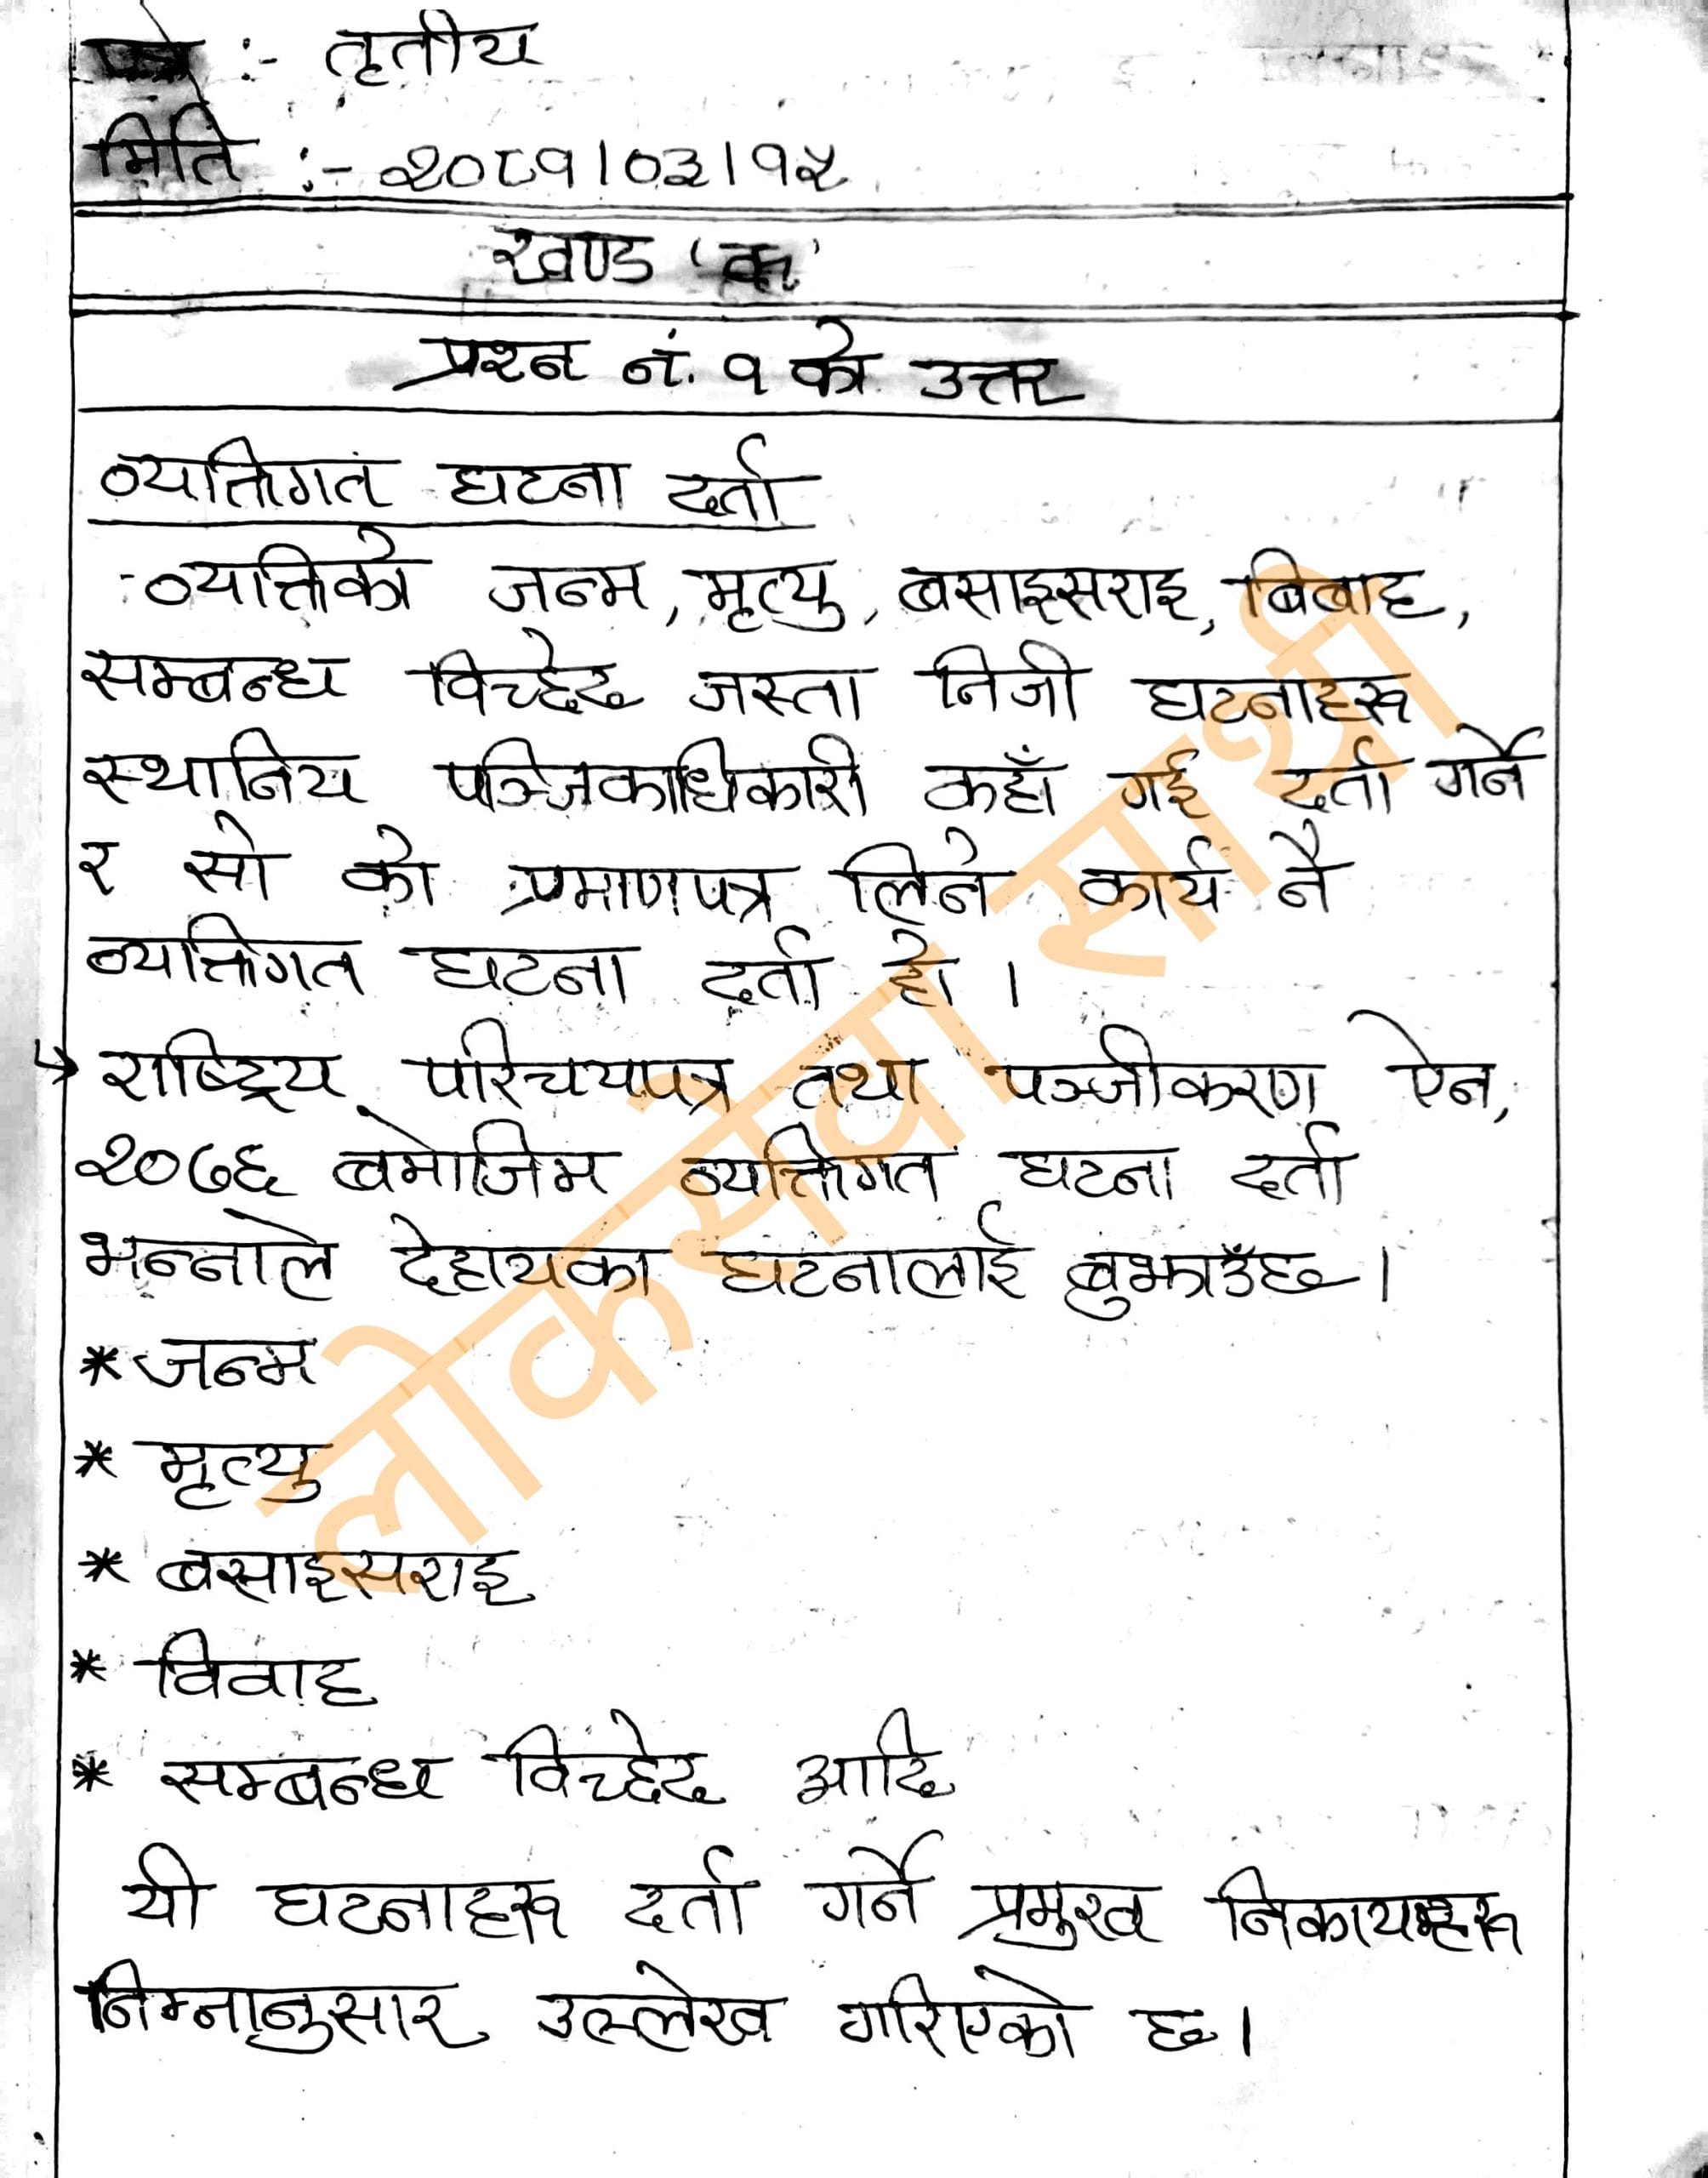 पत्र :- तृतीय
मिति :- २०८१।०३।१५
खण्ड 'क'
प्रश्न नं. १ को उत्तर
व्यक्तिगत घटना दर्ता
व्यक्तिको जन्म, मृत्यु, बसाइसराइ, बिबाह,
सम्बन्ध विच्छेद जस्ता निजी घटनाहरू
स्थानिय पञ्जिकाधिकारी कहाँ गई दर्ता गर्ने
र सो को प्रमाणपत्र लिने कार्य नै
व्यक्तिगत घटना दर्ता हो ।
→ राष्ट्रिय परिचयपत्र तथा पञ्जीकरण ऐन,
२०७६ बमोजिम व्यक्तिगत घटना दर्ता
भन्नाले देहायका घटनालाई बुझाउँछ ।
* जन्म
* मृत्यु
* बसाइसराइ
* विवाह
* सम्बन्ध विच्छेद आदि
यी घटनाहरू दर्ता गर्ने प्रमुख निकायहरू
निम्नानुसार उल्लेख गरिएको छ ।
लोकसेवा सारथी